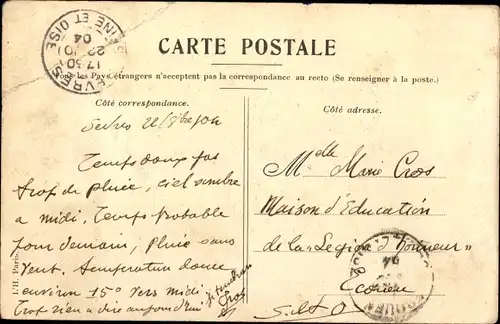 SEVRES
SEINE ET OISE
17 30
22
04
CARTE POSTALE
Tous les Pays étrangers n'acceptent pas la correspondance au recto (Se renseigner à la poste.)
Côté correspondance.
Sèvres 22/ 04
Temps doux pas
trop de pluie, ciel sombre
a midi. Temps probable
pour demain, pluie sans
vent. Temperature douce
environ 15° vers midi
rien a dire aujourd'hui
Cros
I.H. Paris
Côté adresse.
Melle Marie Cros
Maison d'Education
de la "Legion d'honneur"
Ecouen
S. et O
ECOUEN
04